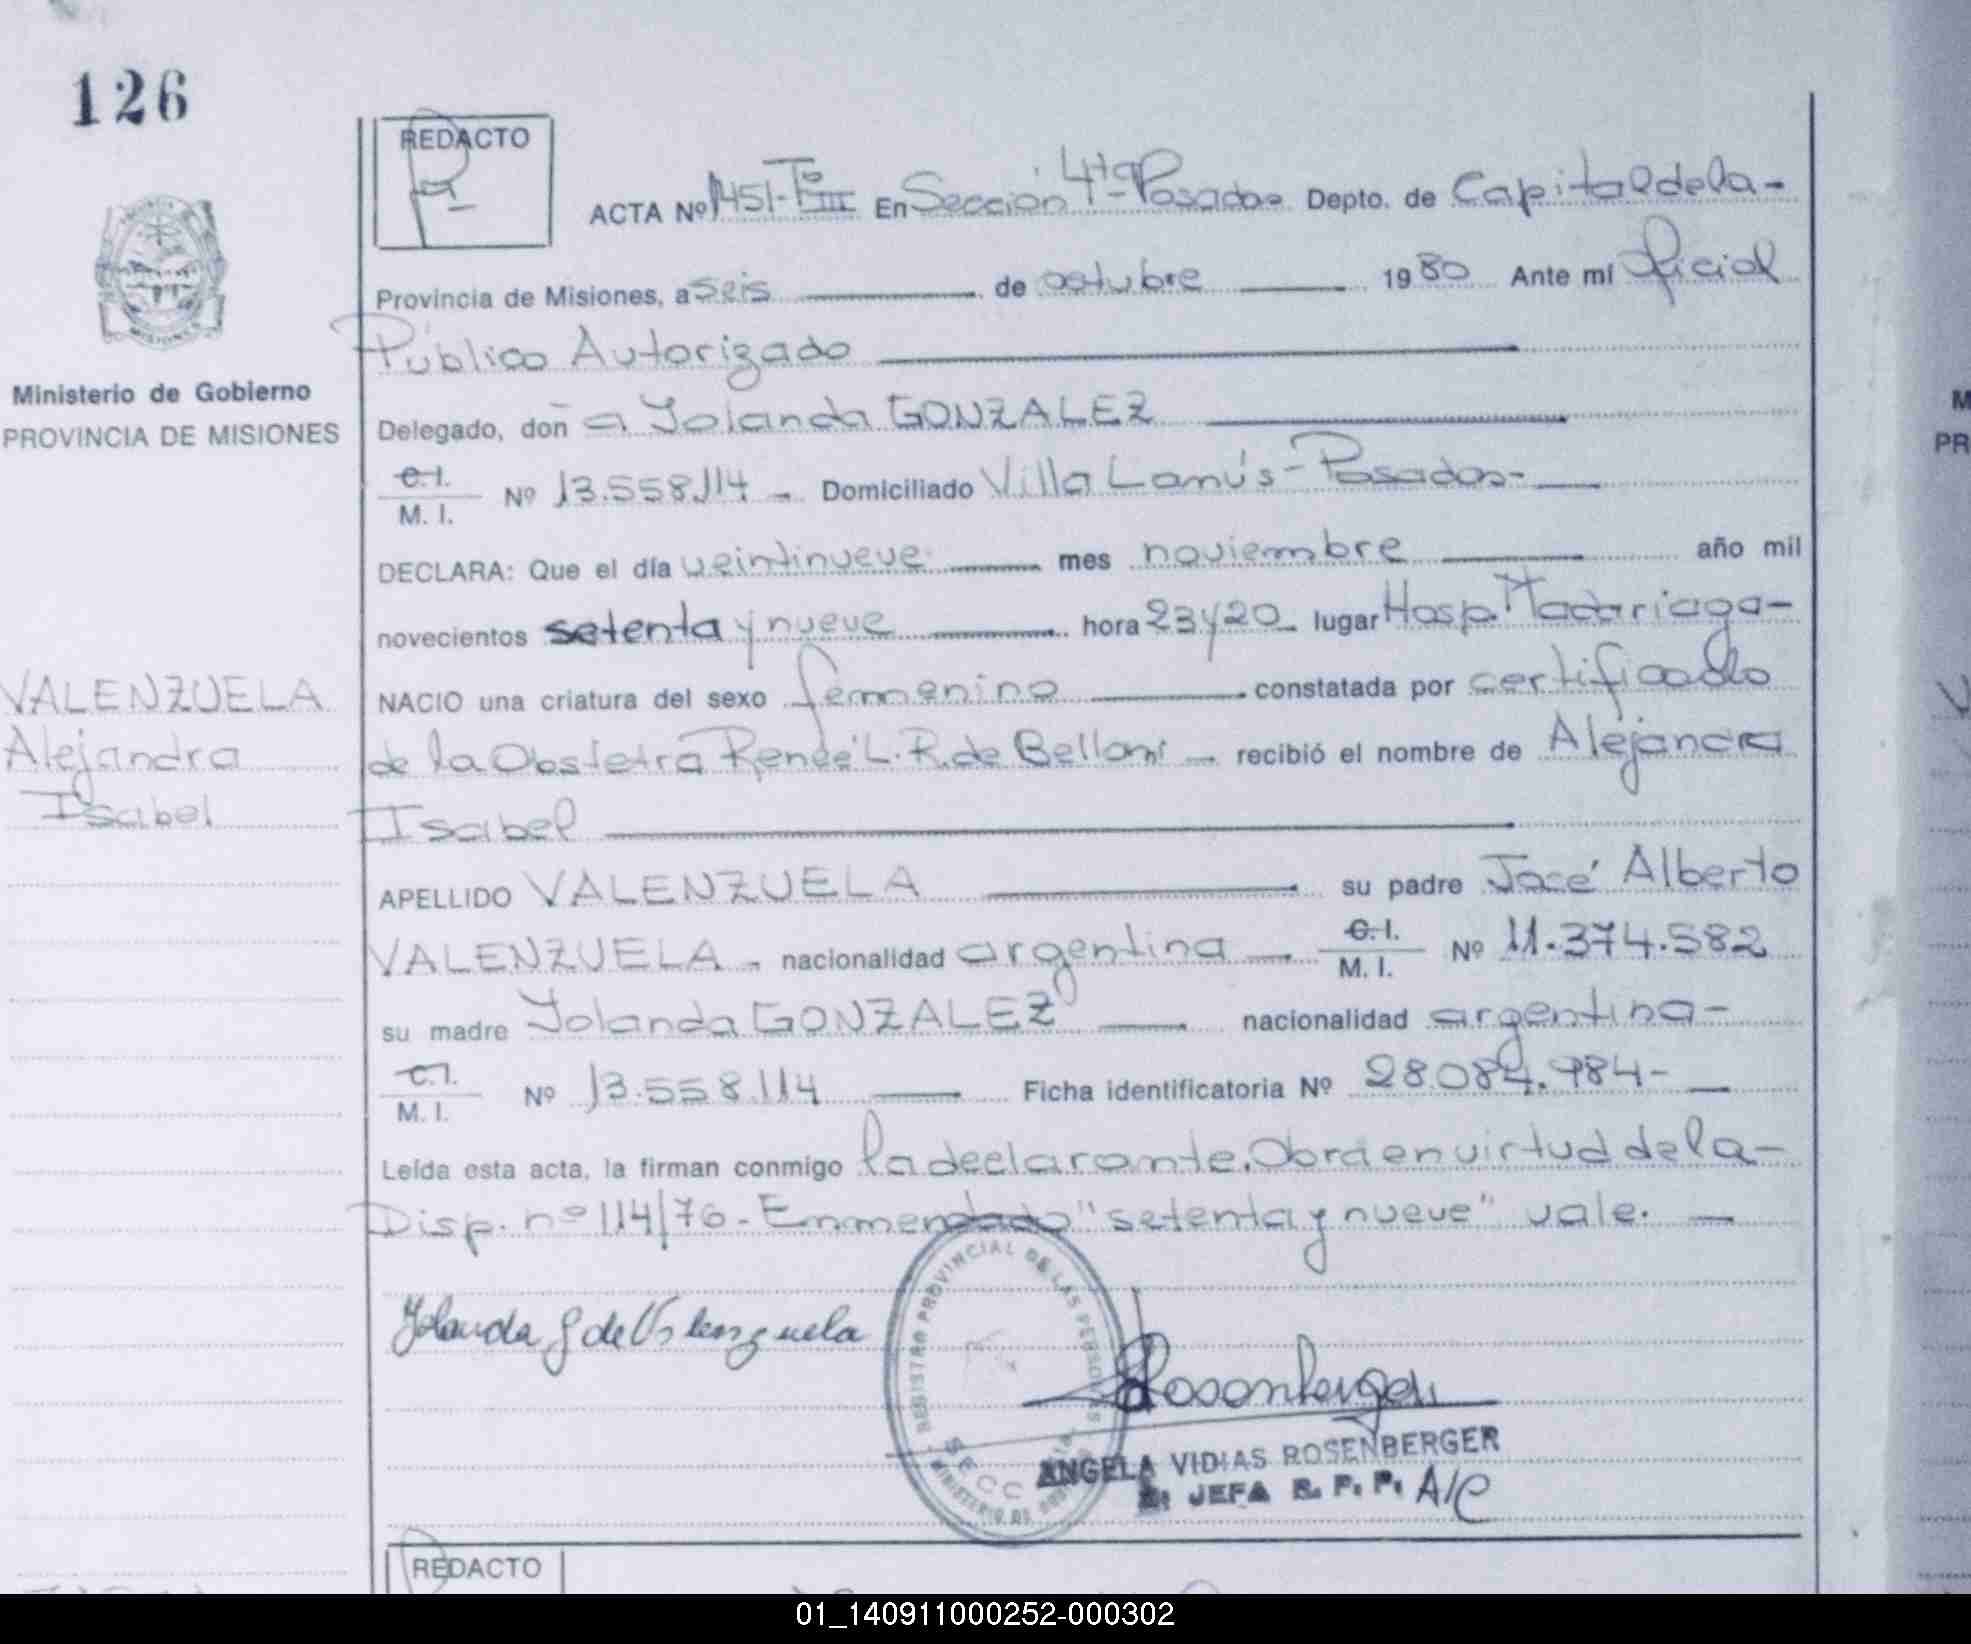 126
REDACTO
ACTA Nº 1451-Tº III En Sección 4ta Posadas Depto. de Capital de la-
Provincia de Misiones, a seis de octubre 1980 Ante mí Oficial
Público Autorizado
Ministerio de Gobierno
PROVINCIA DE MISIONES
Delegado, doña Yolanda GONZALEZ
C.I.
M. I. Nº 13.558.114 - Domiciliado Villa Lanús - Posadas-
DECLARA: Que el día veintinueve mes noviembre año mil
novecientos setenta y nueve hora 23y20 lugar Hosp. Madariaga-
VALENZUELA
Alejandra
Isabel
NACIO una criatura del sexo femenino constatada por certificado
de la Obstetra Renée L. R. de Belloni recibió el nombre de Alejandra
Isabel
APELLIDO VALENZUELA su padre José Alberto
VALENZUELA - nacionalidad argentina C.I.
M. I. Nº 11.374.582
su madre Yolanda GONZALEZ nacionalidad argentina-
C.I.
M. I. Nº 13.558.114 Ficha identificatoria Nº 28.084.984-
Leída esta acta, la firman conmigo la declarante. Obra en virtud de la-
Disp. nº 114/76 - Enmendado "setenta y nueve" vale.
Yolanda G de Valenzuela
REGISTRO PROVINCIAL DE LAS PERSONAS
MINISTERIO DE
SECC
Rosenberger
ANGELA VIDIAS ROSENBERGER
JEFA R. P. P. A/C
REDACTO
M
PR
V
01_140911000252-000302